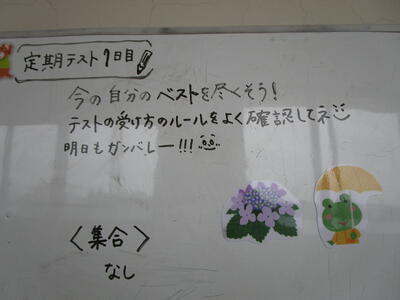 定期テスト1日目
今の自分のベストを尽くそう!
テストの受け方のルールをよく確認してネ
明日もガンバレー!!!
〈集合〉
なし